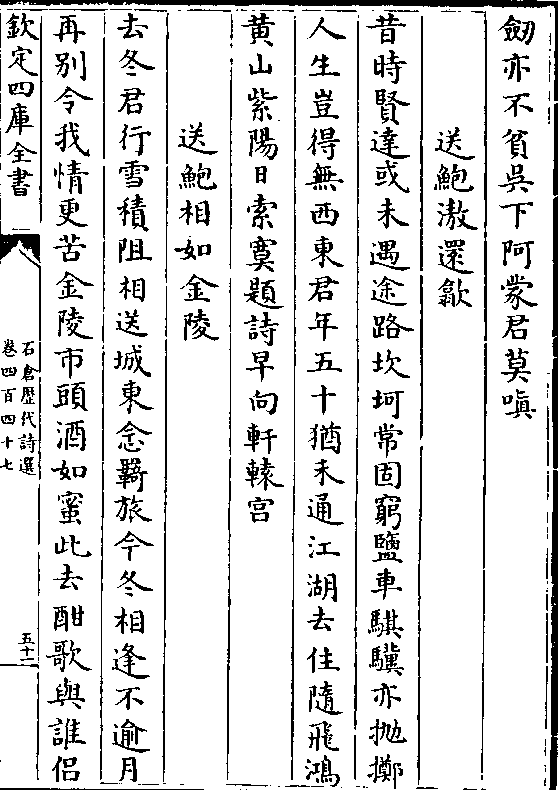 劒亦不貧吳下阿蒙君莫嗔
送鮑漖還歙
昔時賢達或未遇途路坎坷常固窮鹽車騏驥亦抛擲
人生豈得無西東君年五十猶未通江湖去住隨飛鴻
黄山紫陽日索寞題詩早向軒轅宫
送鮑相如金陵
去冬君行雪積阻相送城東念羇旅今冬相逢不逾月
再别令我情更苦金陵市頭酒如蜜此去酣歌與誰侣
欽定四庫全書
石倉歴代詩選
卷四百四十七
五十二